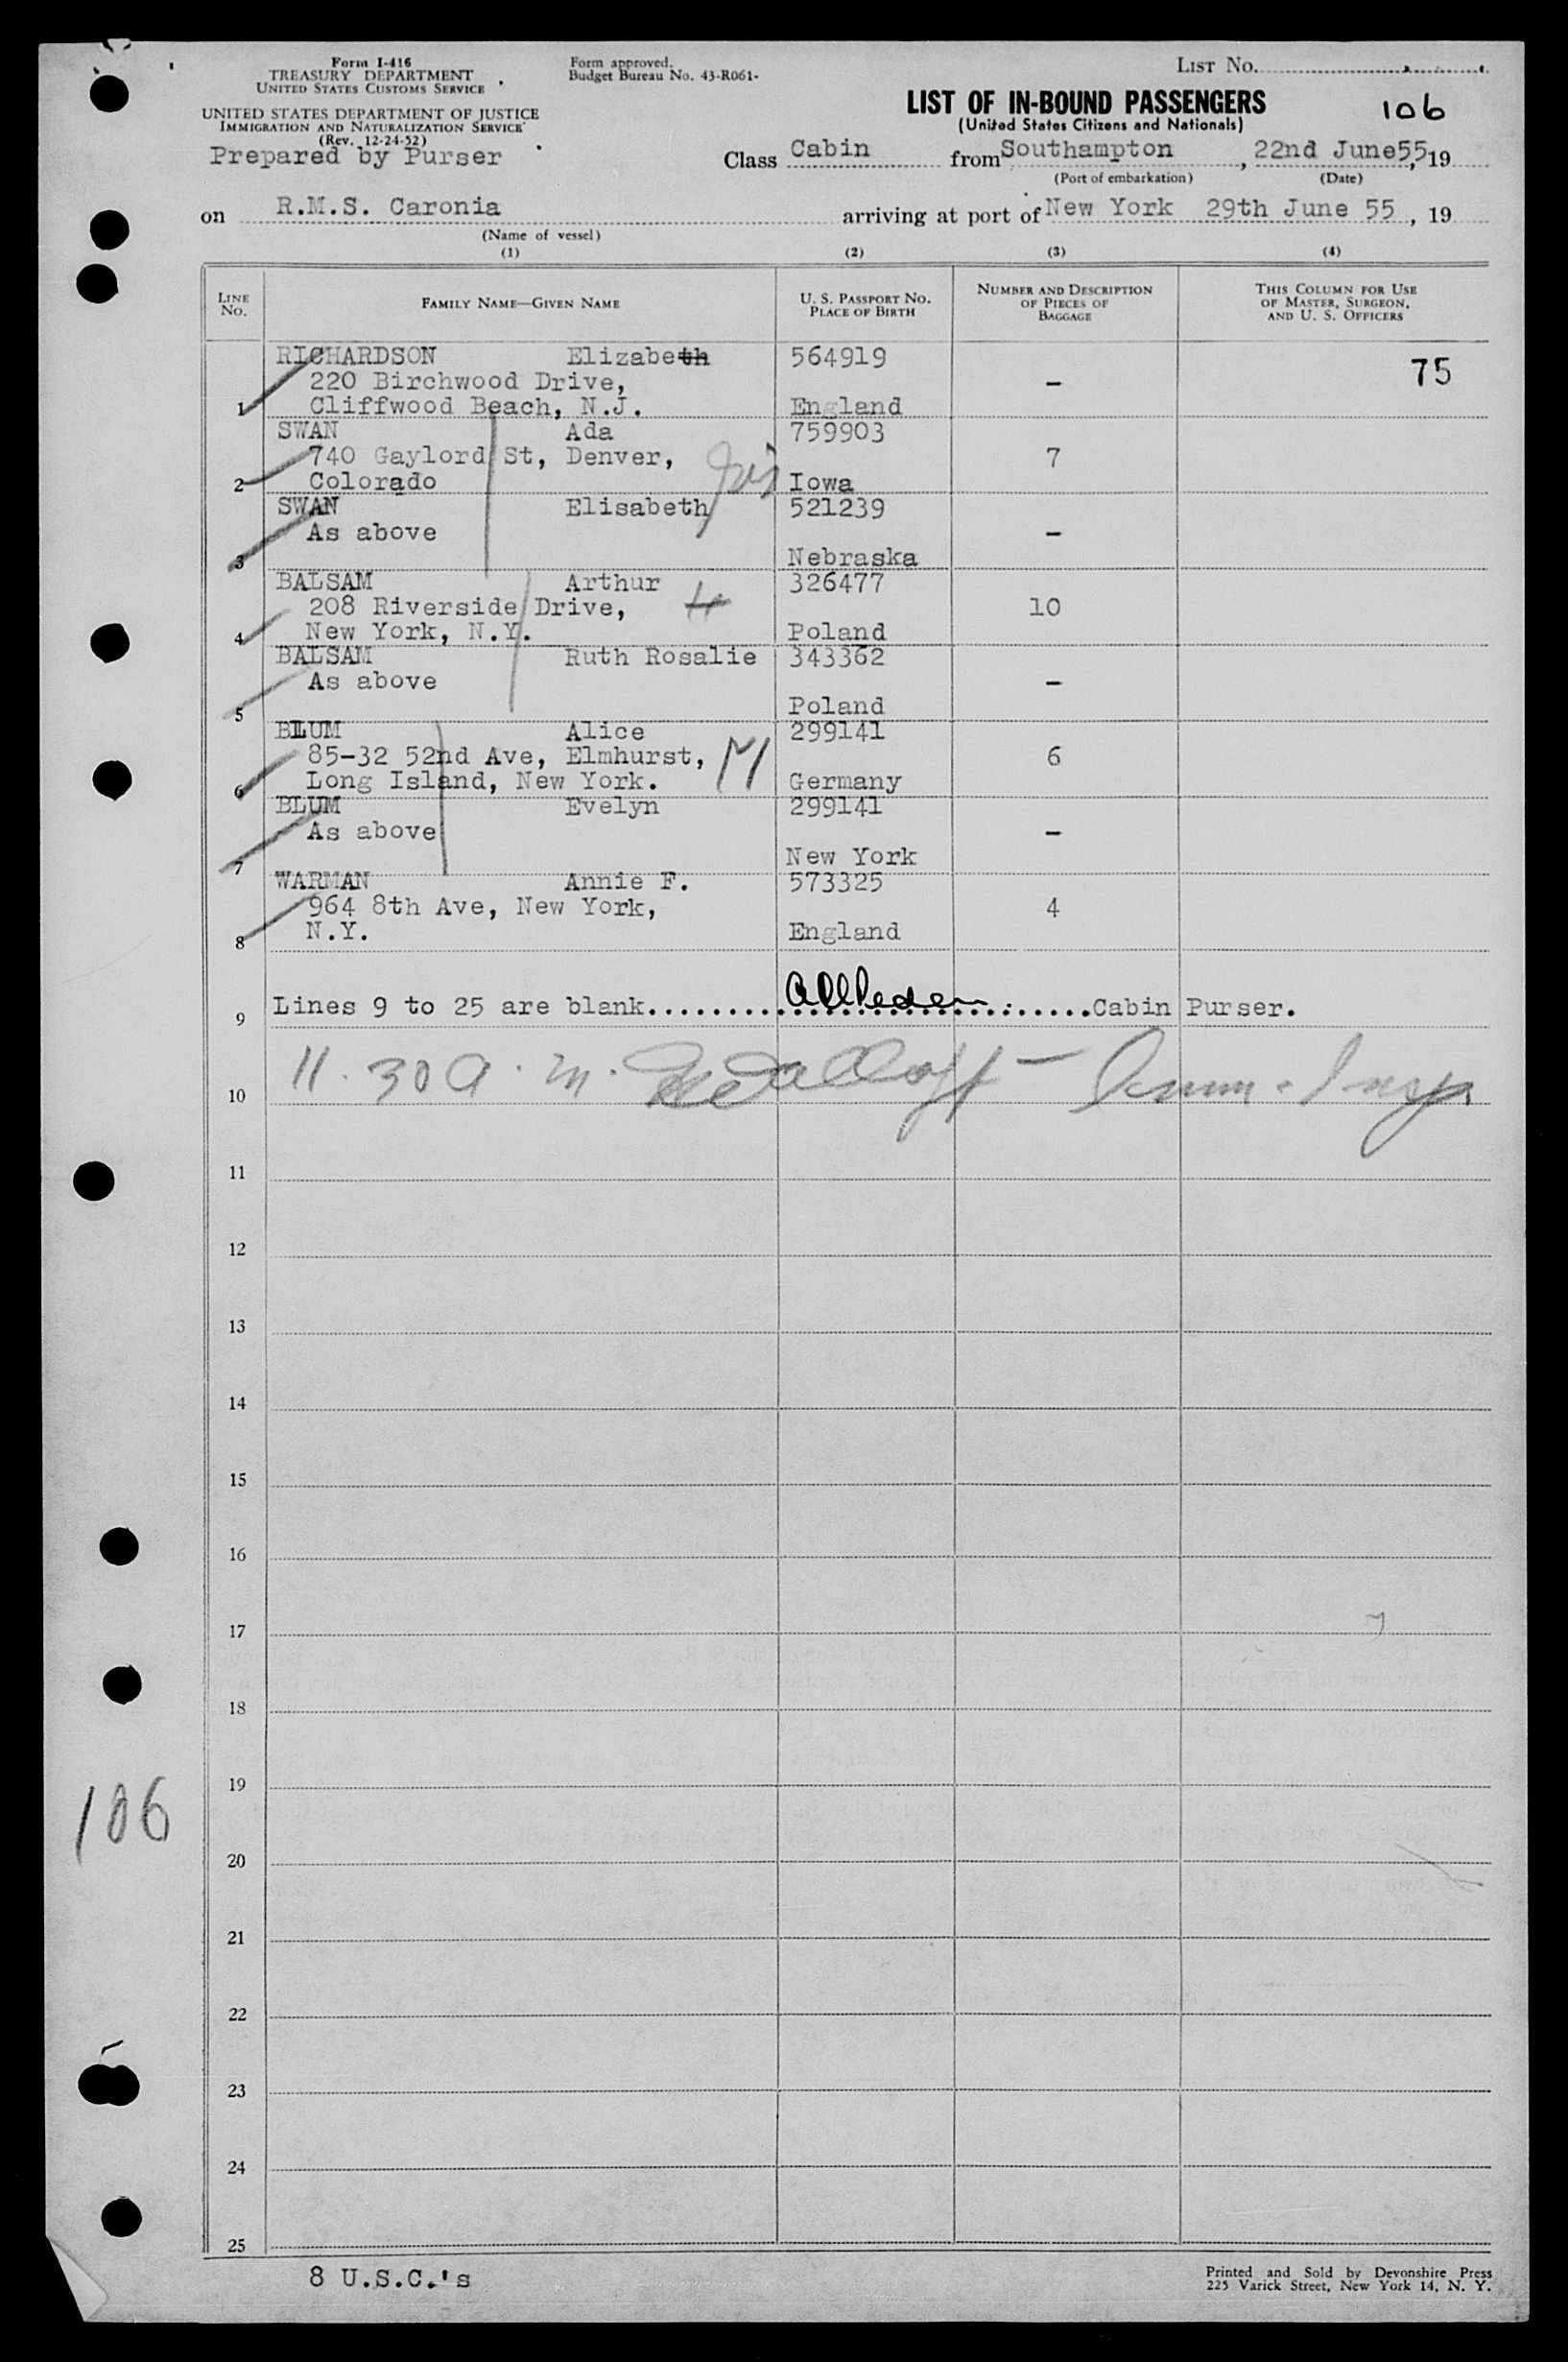 Form I-416
TREASURY DEPARTMENT
UNITED STATES CUSTOMS SERVICE
UNITED STATES DEPARTMENT OF JUSTICE
IMMIGRATION AND NATURALIZATION SERVICE
(Rev. 12-24-52)
Prepared by Purser
Form approved.
Budget Bureau No. 43-R061-
LIST NO.
LIST OF IN-BOUND PASSENGERS
(United States Citizens and Nationals)
106
Class Cabin from Southampton, 22nd June55, 19
(Port of embarkation) (Date)
on R.M.S. Caronia arriving at port of New York 29th June 55, 19
(Name of vessel)
(1) (2) (3) (4)
LINE NO. FAMILY NAME—GIVEN NAME U. S. PASSPORT NO. PLACE OF BIRTH NUMBER AND DESCRIPTION OF PIECES OF BAGGAGE THIS COLUMN FOR USE OF MASTER, SURGEON, AND U. S. OFFICERS
RICHARDSON Elizabeth 564919
220 Birchwood Drive, - 75
1 Cliffwood Beach, N.J. England
SWAN Ada 759903
740 Gaylord St, Denver, 7
2 Colorado Iowa
SWAN Elisabeth 521239
As above -
3 Nebraska
BALSAM Arthur 326477
208 Riverside Drive, 10
4 New York, N.Y. Poland
BALSAM Ruth Rosalie 343362
As above -
5 Poland
BLUM Alice 299141
85-32 52nd Ave, Elmhurst, M 6
6 Long Island, New York. Germany
BLUM Evelyn 299141
As above -
7 New York
WARMAN Annie F. 573325
964 8th Ave, New York, 4
8 N.Y. England
9 Lines 9 to 25 are blank............................Cabin Purser.
10 11.30 A.m. Imm. Insp
11
12
13
14
15
16
17
18
19
106
20
21
22
23
24
25
8 U.S.C.'s
Printed and Sold by Devonshire Press
225 Varick Street, New York 14, N. Y.